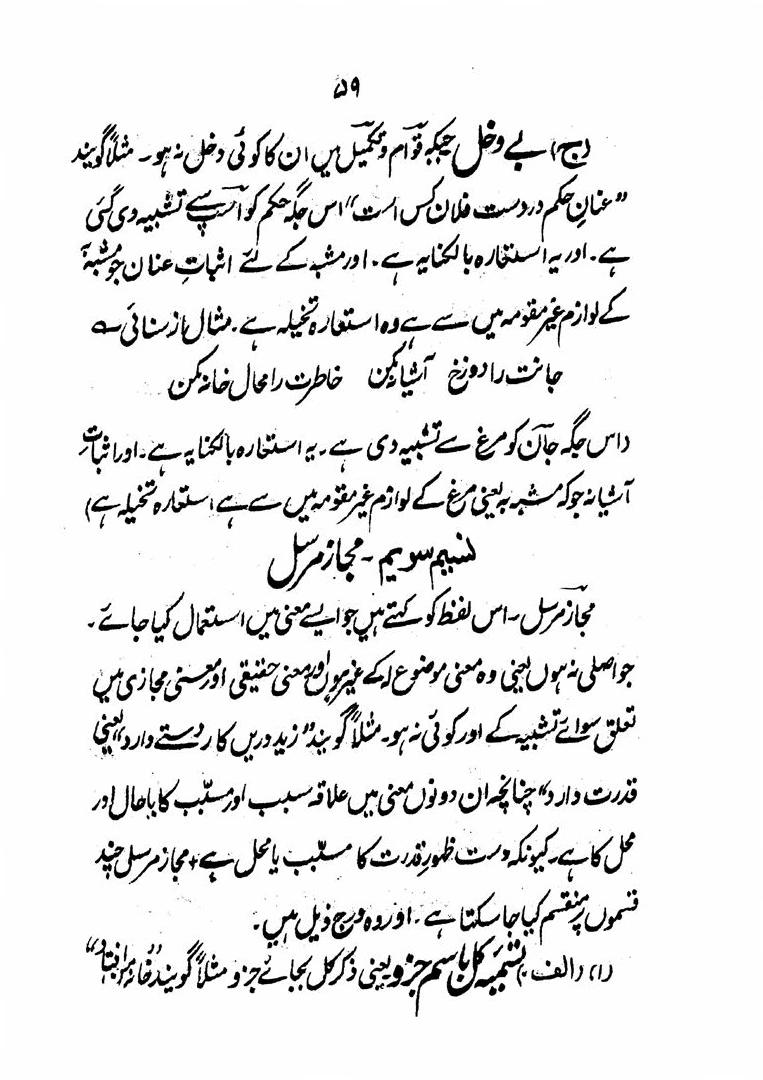 ۵۹
(ج) بے دخل جبکہ قوام و تکمیل میں ان کا کوئی دخل نہ ہو۔ مثلاً گویند
”عنانِ حکم در دست فلان کس است“ اس جگہ حکم کو اسپ سے تشبیہ دی گئی
ہے۔ اور یہ استعارہ بالکنایہ ہے۔ اور مشبہ کے لئے اثباتِ عنان جو مشبہ بہ
کے لوازم غیر مقومہ میں سے ہے وہ استعارہ تخیلہ ہے۔ مثال از سنائی ؎
جانت را دوزخ آشیانہ مکن خاطرت را محال خانہ مکن
(اس جگہ جان کو مرغ سے تشبیہ دی ہے۔ یہ استعارہ بالکنایہ ہے۔ اور اثباتِ
آشیانہ جو کہ مشبہ بہ یعنی مرغ کے لوازم غیر مقومہ میں سے ہے استعارہ تخیلہ ہے)
نسیم سویم۔ مجاز مرسل
مجاز مرسل۔ اس لفظ کو کہتے ہیں جو ایسے معنی میں استعمال کیا جائے۔
جو اصلی نہ ہوں یعنی وہ معنی موضوع لہ کے غیر ہوں اور معنی حقیقی اور معنی مجازی میں
تعلق سوائے تشبیہ کے اور کوئی نہ ہو۔ مثلاً گویند ”زید دریں کار دستے دارد“ یعنی
قدرت دارد“ چنانچہ ان دونوں معنی میں علاقہ سبب اور مسبّب کا یا حال اور
محل کا ہے۔ کیونکہ دست ظہورِ قدرت کا مسبّب یا محل ہے + مجاز مرسل چند
قسموں پر منقسم کیا جا سکتا ہے۔ اور وہ درج ذیل ہیں۔
(۱) (الف) تسمیۂ کل باسم جزو یعنی ذکر کل بجائے جزو مثلاً گویند